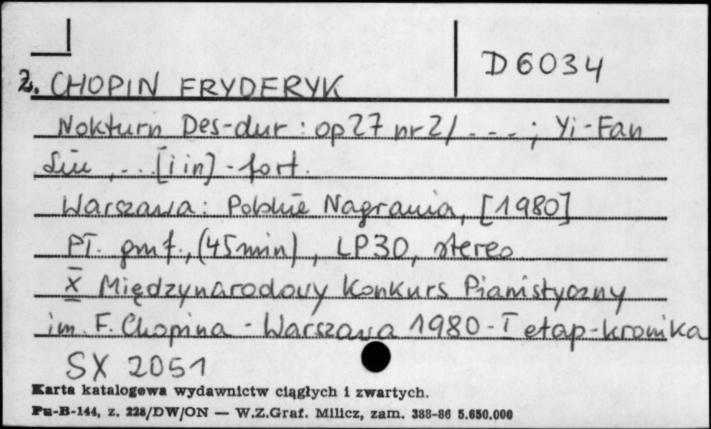 D6034
2. CHOPIN FRYDERYK
Nokturn Des-dur : op 27 nr 2 / - - - ; Yi-Fan
Liu , ... [i in] - fort.
Warszawa : Polskie Nagrania, [1980]
Pł. gmf., (45 min) , LP30, stereo
X Międzynarodowy Konkurs Pianistyczny
im. F. Chopina - Warszawa 1980 - I etap - kronika
SX 2051
Karta katalogowa wydawnictw ciągłych i zwartych.
Pu-B-144, z. 228/DW/ON — W.Z.Graf. Milicz, zam. 388-86 5.650.000